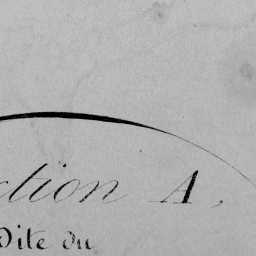 ction A,
Dite du